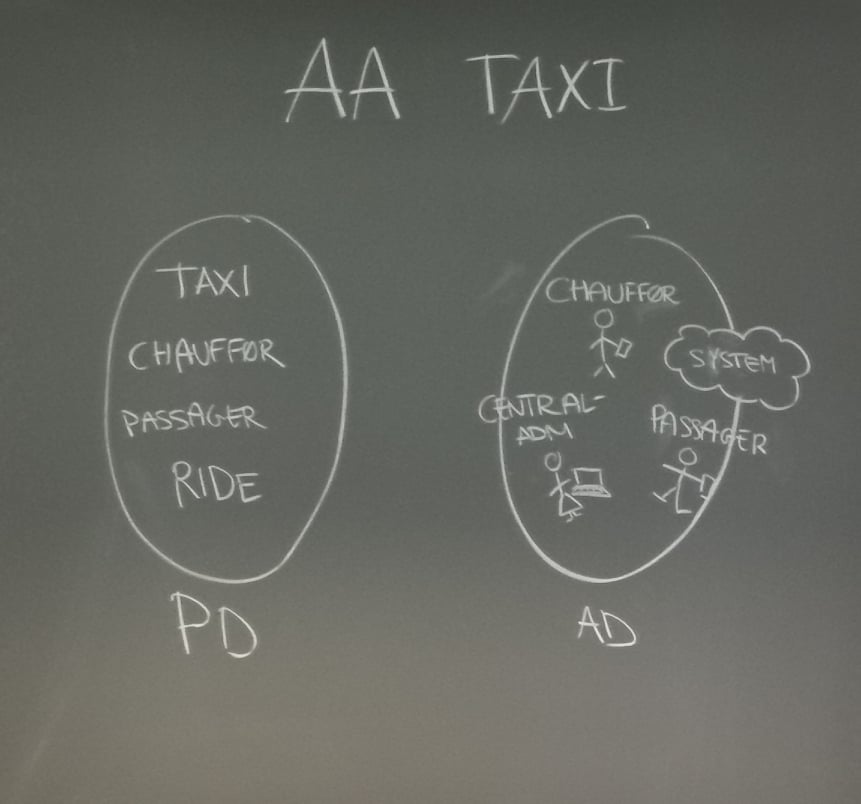 AA TAXI
TAXI
CHAUFFØR
PASSAGER
RIDE
PD
CHAUFFØR
SYSTEM
CENTRAL-
ADM
PASSAGER
AD